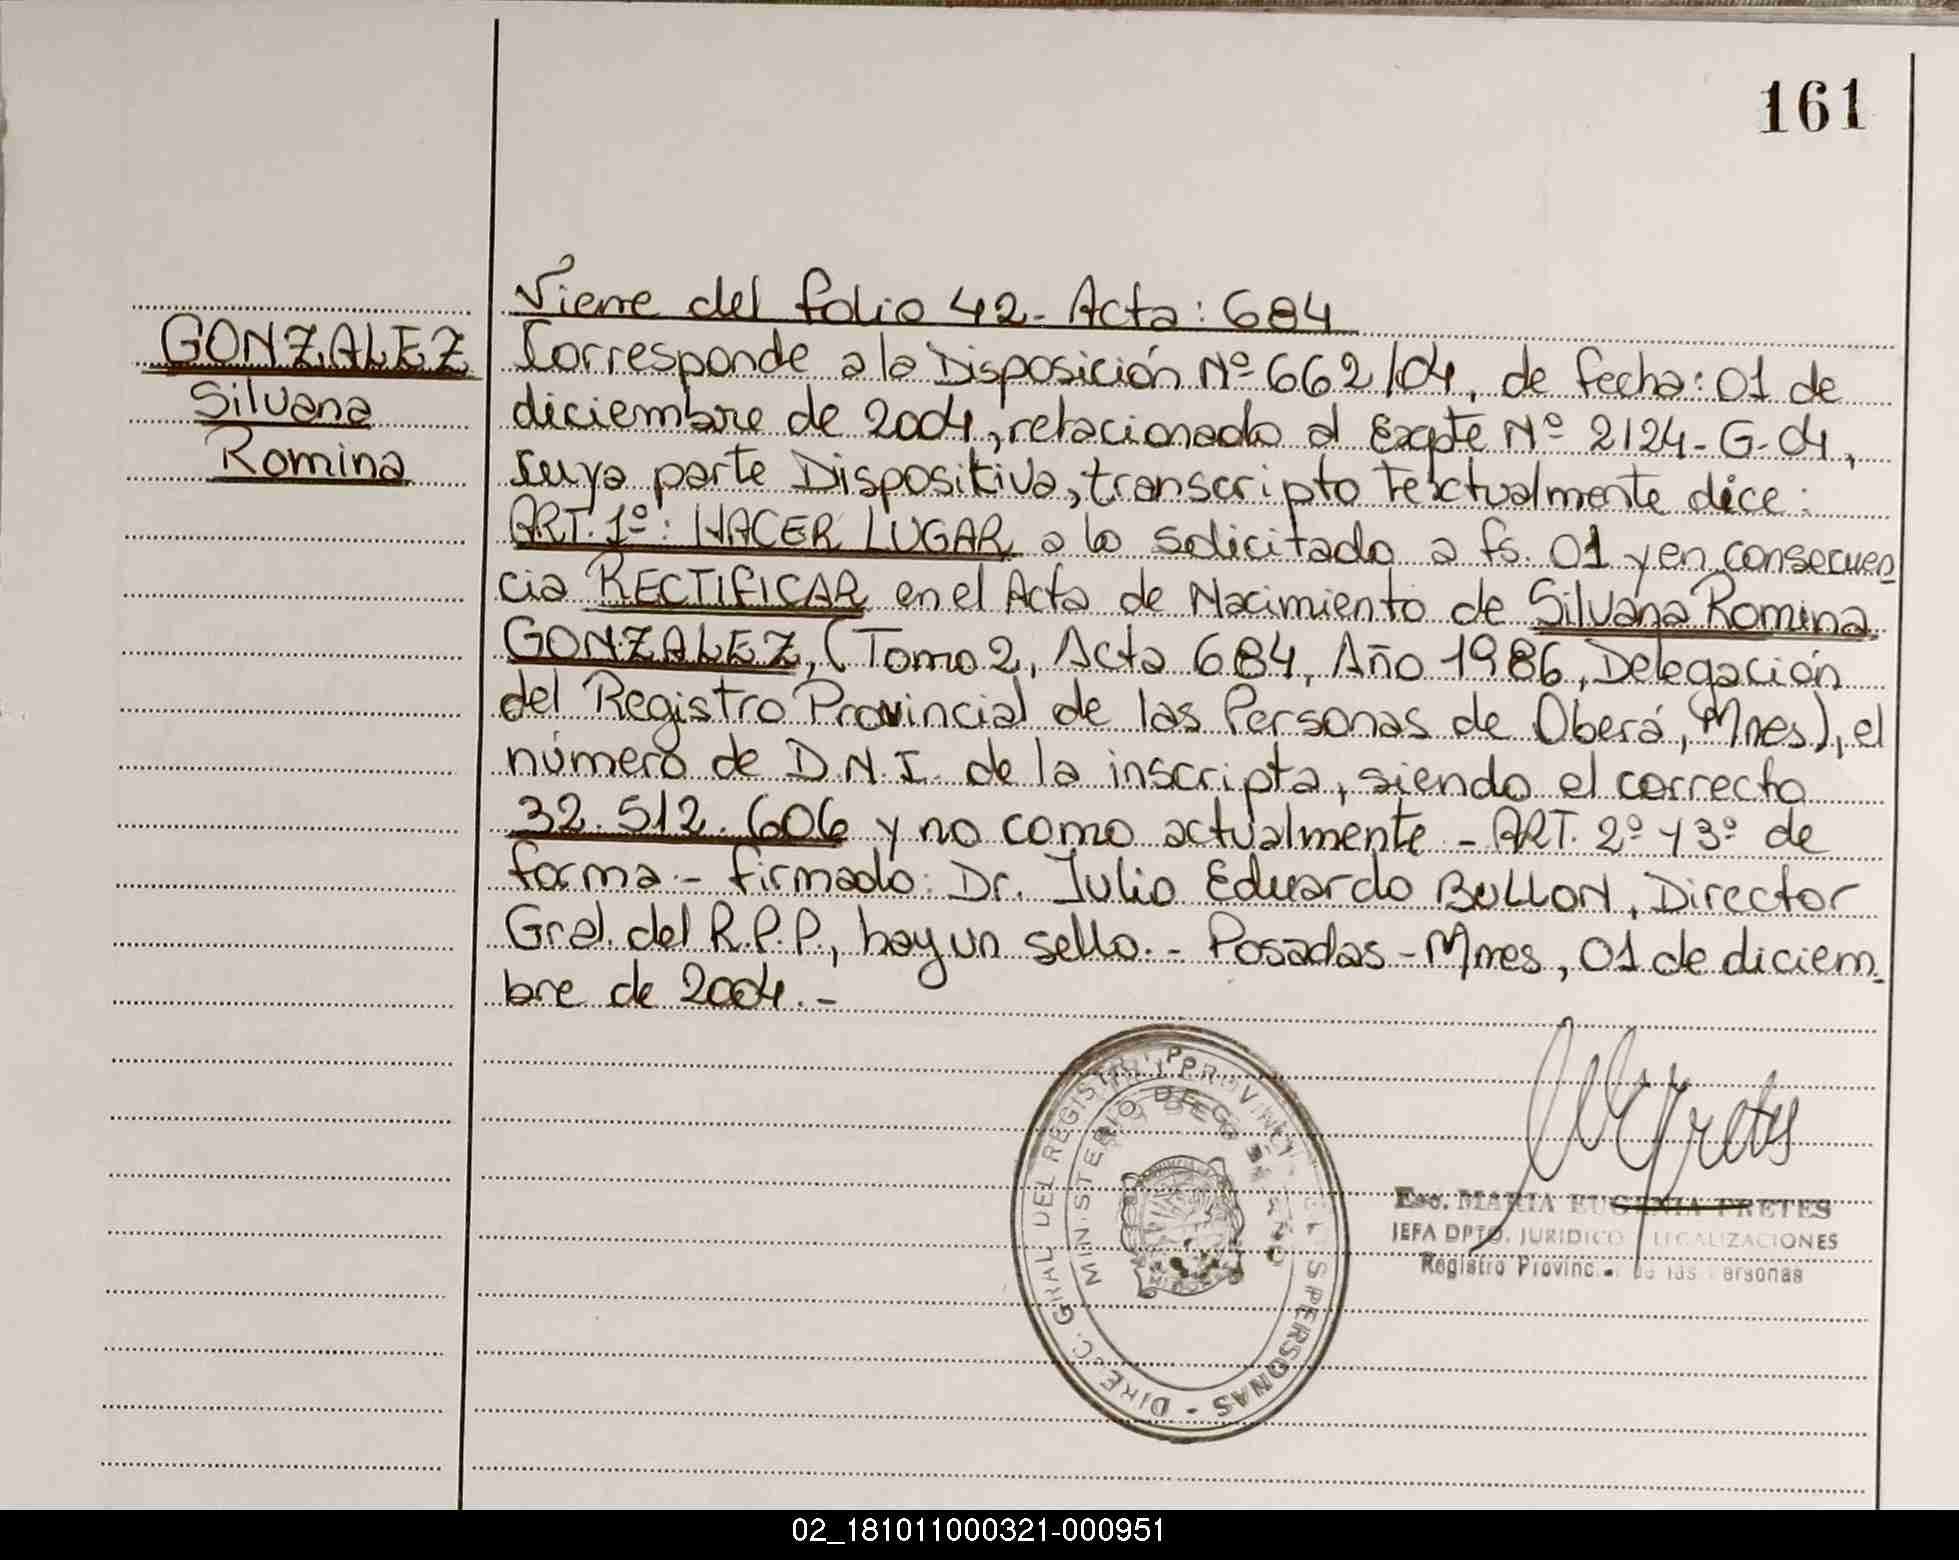 161
GONZALEZ
Silvana
Romina
Viene del folio 42- Acta: 684
Corresponde a la Disposición Nº 662/04, de fecha: 01 de
diciembre de 2004, relacionado al Expte Nº 2124-G-04,
cuya parte Dispositiva, transcripto textualmente dice:
ART. 1º: HACER LUGAR a lo solicitado a fs. 01 y en consecuen
cia RECTIFICAR en el Acta de Nacimiento de Silvana Romina
GONZALEZ, (Tomo 2, Acta 684, Año 1986, Delegación
del Registro Provincial de las Personas de Oberá, Mnes), el
número de D.N.I. de la inscripta, siendo el correcto
32.512.606 y no como actualmente - ART. 2º y 3º de
forma.- firmado: Dr. Julio Eduardo BULLON, Director
Gral. del R.P.P., hay un sello.- Posadas - Mnes, 01 de diciem
bre de 2004.-
DIRECC. GRAL DEL REGISTRO PROVINCIAL PERSONAS -
MINISTERIO DE GOBIERNO
Esc. MARIA EUGENIA PRETES
JEFA DPTO. JURIDICO LEGALIZACIONES
Registro Provinc. de las Personas
02_181011000321-000951